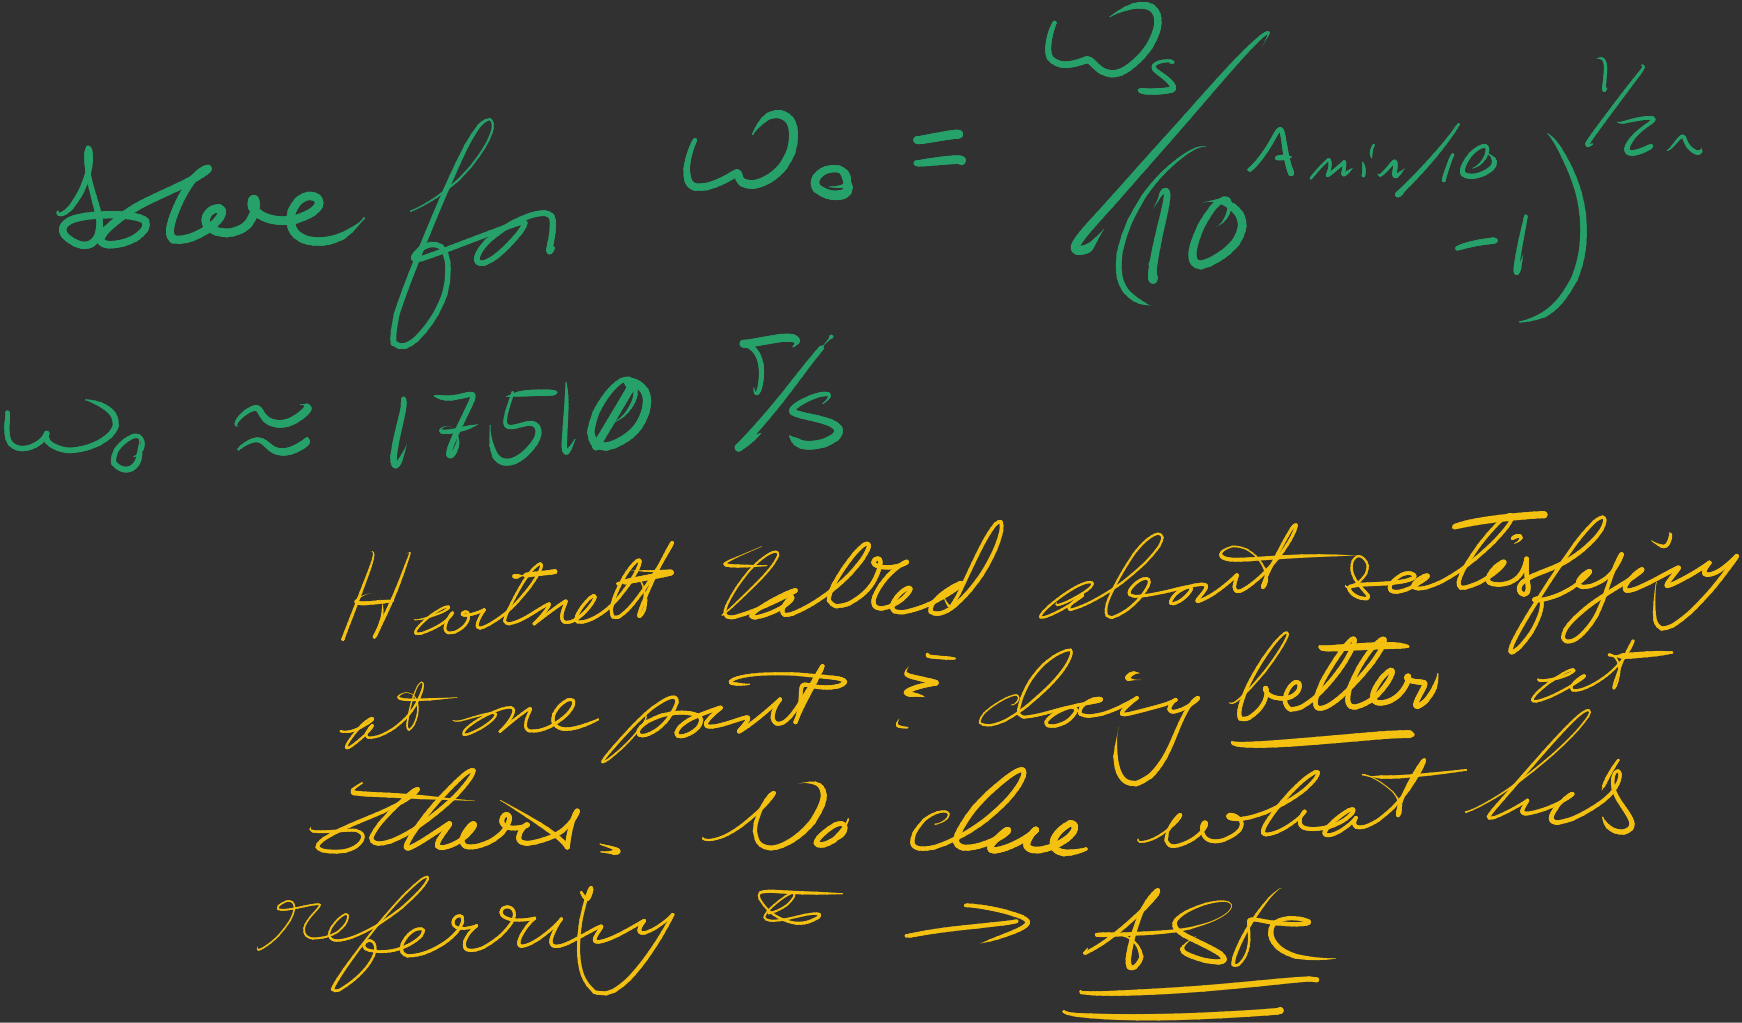 solve for ω₀ = ωs/(10^(Amin/10) - 1)^(1/2n)
ω₀ ≈ 17510 r/s
Hartnett talked about satisfying
at one point & doing better at
others. No clue what he's
referring to → ASK